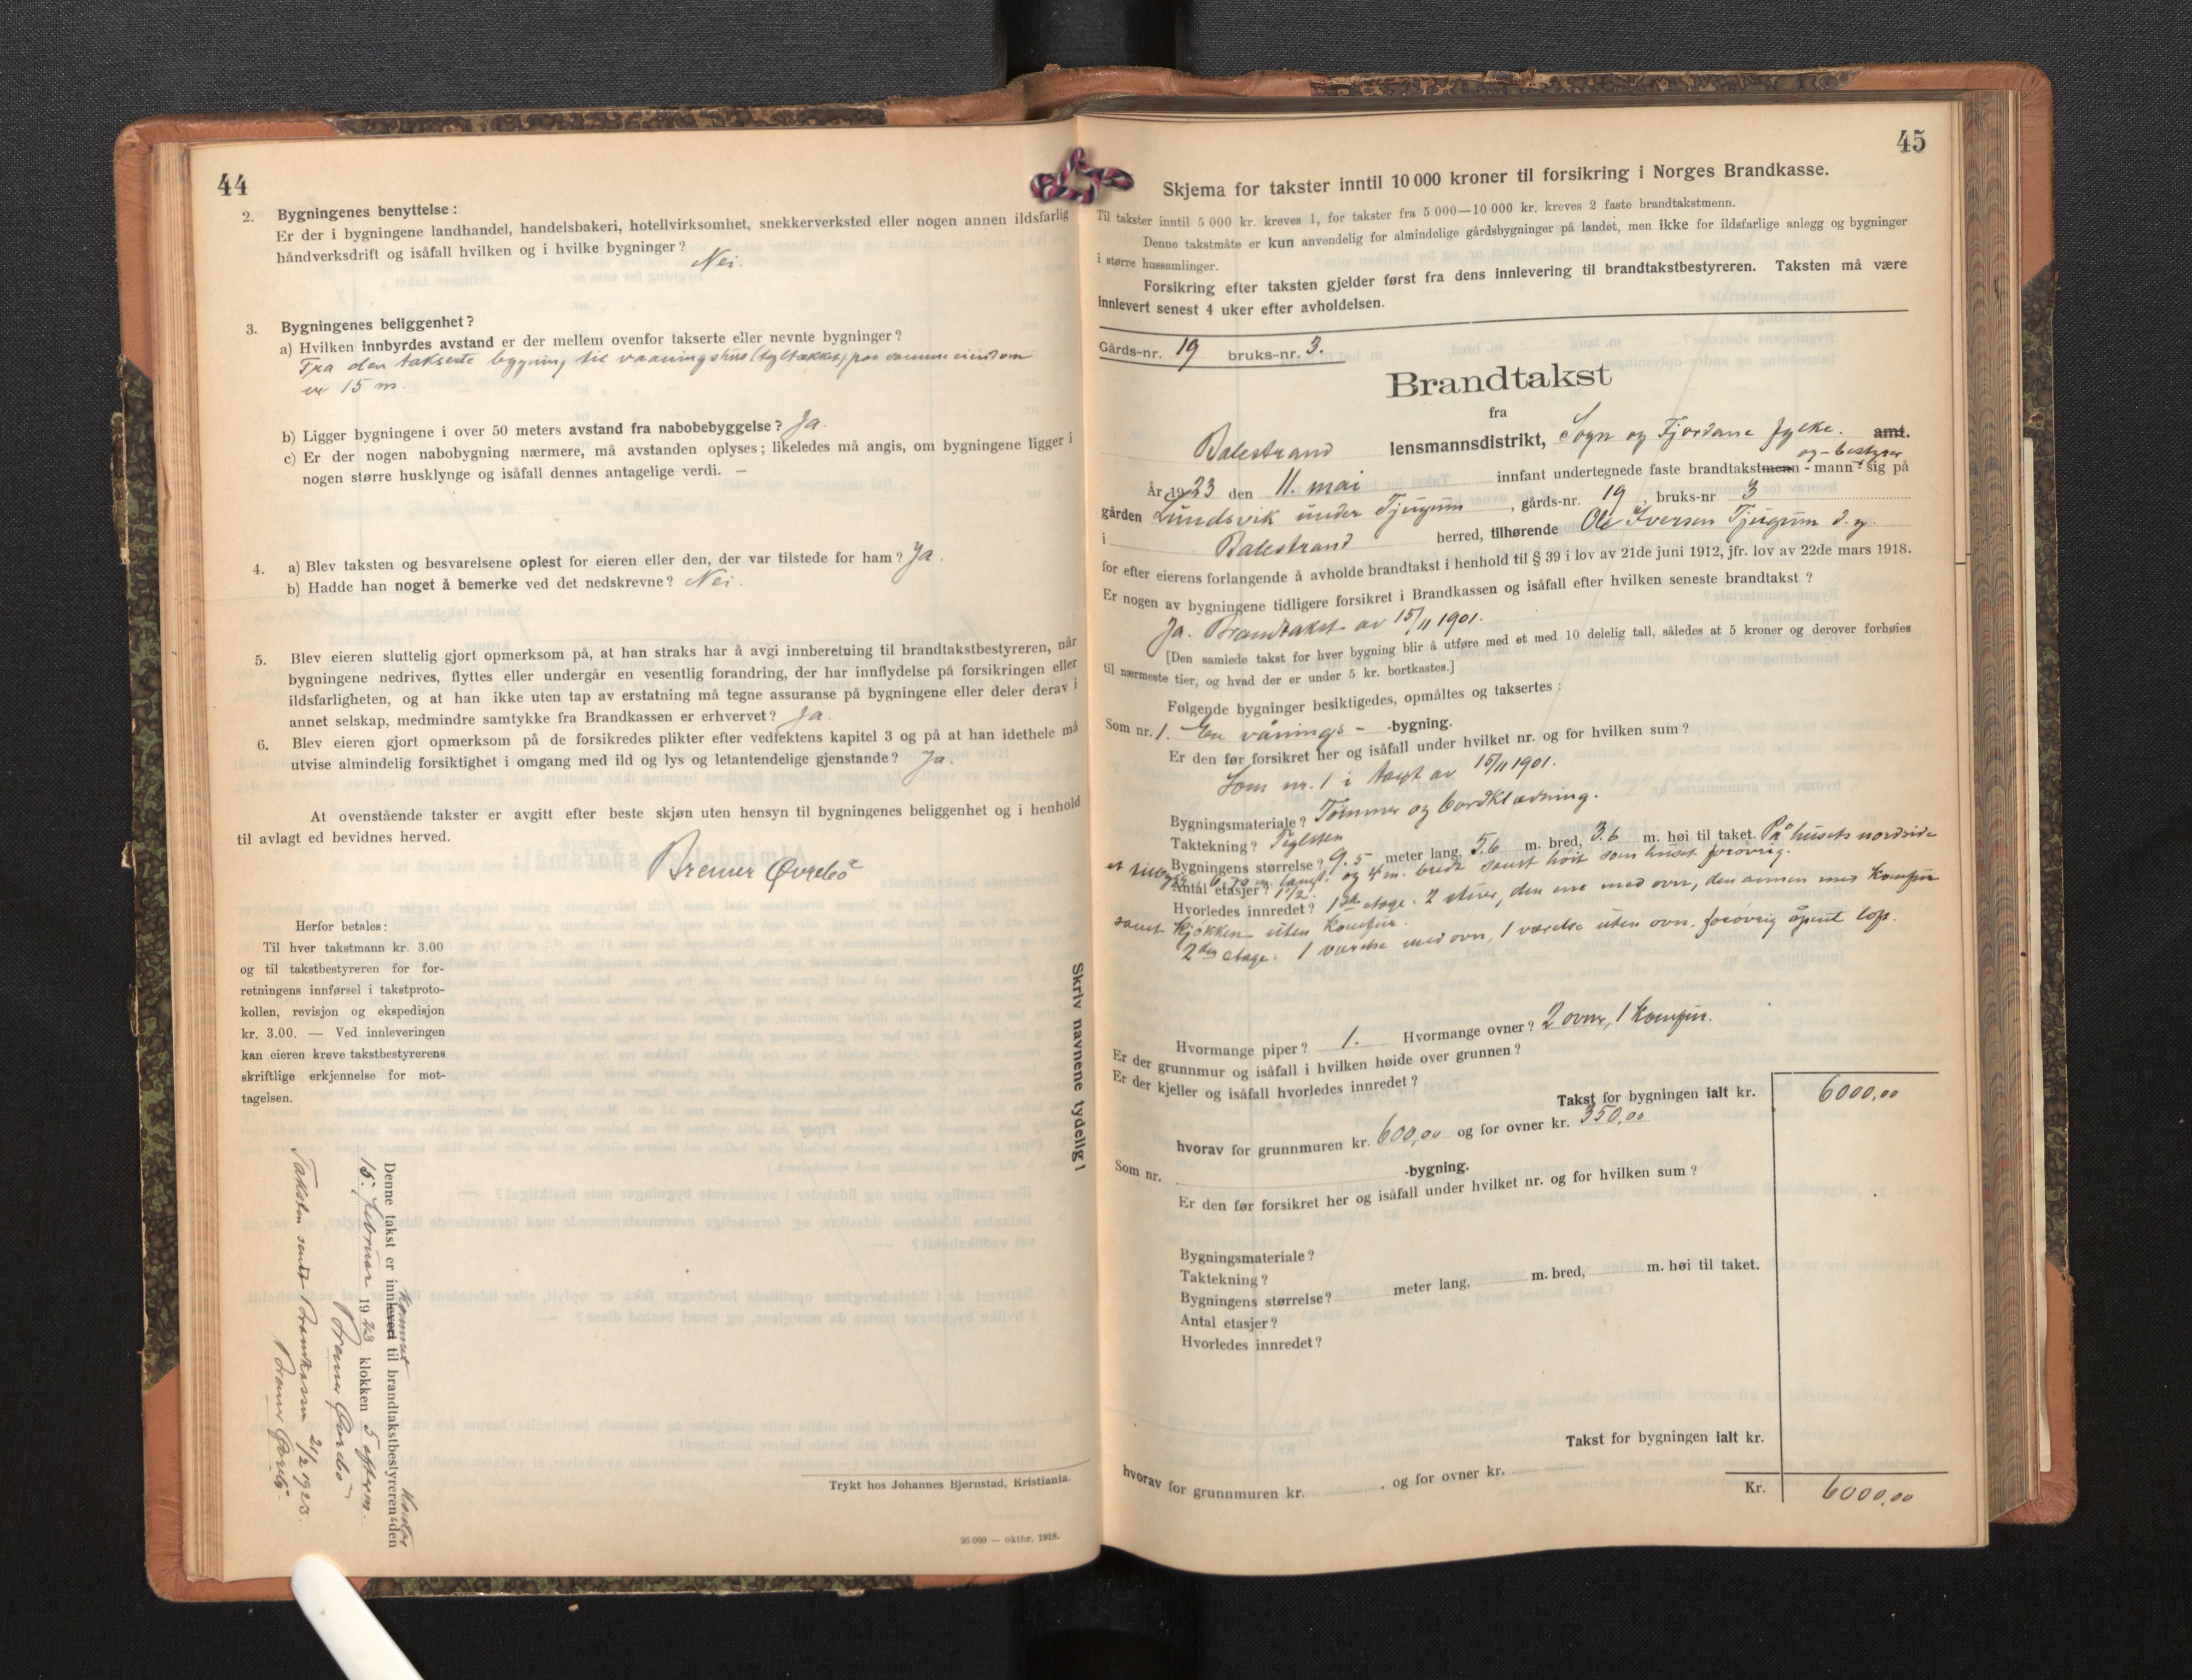 44
2. Bygningenes benyttelse:
Er der i bygningene landhandel, handelsbakeri, hotellvirksomhet, snekkerverksted eller nogen annen ildsfarlig
håndverksdrift og isåfall hvilken og i hvilke bygninger? Nei.
3. Bygningenes beliggenhet?
a) Hvilken innbyrdes avstand er der mellem ovenfor takserte eller nevnte bygninger?
Fra den takserte bygning til vaaningshus (teglsækket) paa samme eiendom
er 15 m.
b) Ligger bygningene i over 50 meters avstand fra nabobebyggelse? Ja.
c) Er der nogen nabobygning nærmere, må avstanden oplyses; likeledes må angis, om bygningene ligger i
nogen større husklynge og isåfall dennes antagelige verdi. —
4. a) Blev taksten og besvarelsene oplest for eieren eller den, der var tilstede for ham? Ja.
b) Hadde han noget å bemerke ved det nedskrevne? Nei.
5. Blev eieren sluttelig gjort opmerksom på, at han straks har å avgi innberetning til brandtakstbestyreren, når
bygningene nedrives, flyttes eller undergår en vesentlig forandring, der har innflydelse på forsikringen eller
ildsfarligheten, og at han ikke uten tap av erstatning må tegne assuranse på bygningene eller deler derav i
annet selskap, medmindre samtykke fra Brandkassen er erhvervet? Ja.
6. Blev eieren gjort opmerksom på de forsikredes plikter efter vedtektens kapitel 3 og på at han idethele må
utvise almindelig forsiktighet i omgang med ild og lys og letantendelige gjenstande? Ja.
At ovenstående takster er avgitt efter beste skjøn uten hensyn til bygningenes beliggenhet og i henhold
til avlagt ed bevidnes herved.
Bremer Øvrebø
Herfor betales:
Til hver takstmann kr. 3.00
og til takstbestyreren for for-
retningens innførsel i takstproto-
kollen, revisjon og ekspedisjon
kr. 3.00. — Ved innleveringen
kan eieren kreve takstbestyrerens
skriftlige erkjennelse for mot-
tagelsen.
kommet kontor
Denne takst er innlevert til brandtakstbestyrerens den
15. februar 1923 klokken 5 efterm.
Bremer Øvrebø
Taksten sendt Brandkassen 21/2 1923.
Bremer Øvrebø.
Trykt hos Johannes Bjørnstad, Kristiania.
95 000 — oktbr. 1918.
Skriv navnene tydelig!
45
Skjema for takster inntil 10 000 kroner til forsikring i Norges Brandkasse.
Til takster inntil 5 000 kr. kreves 1, for takster fra 5 000—10 000 kr. kreves 2 faste brandtakstmenn.
Denne takstmåte er kun anvendelig for almindelige gårdsbygninger på landet, men ikke for ildsfarlige anlegg og bygninger
i større hussamlinger.
Forsikring efter taksten gjelder først fra dens innlevering til brandtakstbestyreren. Taksten må være
innlevert senest 4 uker efter avholdelsen.
Gårds-nr. 19 bruks-nr. 3.
Brandtakst
fra
Balestrand lensmannsdistrikt, Sogn og Fjordane fylke. amt.
og - bestyrer
År 1923 den 11. mai innfant undertegnede faste brandtakstmenn - mann sig på
gården Lundsvik under Tjugum, gårds-nr. 19, bruks-nr 3
i Balestrand herred, tilhørende Ole Iversen Tjugum d.y.
for efter eierens forlangende å avholde brandtakst i henhold til § 39 i lov av 21de juni 1912, jfr. lov av 22de mars 1918.
Er nogen av bygningene tidligere forsikret i Brandkassen og isåfall efter hvilken seneste brandtakst?
Ja. Brandtakst av 15/11 1901.
[Den samlede takst for hver bygning blir å utføre med et med 10 delelig tall, således at 5 kroner og derover forhøies
til nærmeste tier, og hvad der er under 5 kr. bortkastes.]
Følgende bygninger besiktigedes, opmåltes og taksertes:
Som nr. 1. En vånings- -bygning.
Er den før forsikret her og isåfall under hvilket nr. og for hvilken sum?
Som nr. 1 i takst av 15/11 1901.
Bygningsmateriale? Tømmer og bordklædning.
Taktekning? Teglsten
Bygningens størrelse? 9.5 meter lang, 5.6 m. bred, 3.6 m. høi til taket. På husets nordside
et tilbygg m. langt og 4 m. bredt samt høit som huset forøvrig.
Antal etasjer? 1 1/2.
Hvorledes innredet? 1ste etage. 2 stuer, den ene med ovn, den annen med komfur
samt kjøkken uten komfur.
2den etage. 1 værelse med ovn, 1 værelse uten ovn, forøvrig åpent loft.
Hvormange piper? 1. Hvormange ovner? 2 ovner, 1 komfur.
Er der grunnmur og isåfall i hvilken høide over grunnen?
Er der kjeller og isåfall hvorledes innredet?
Takst for bygningen ialt kr. 6000,00
hvorav for grunnmuren kr. 600,00 og for ovner kr. 350,00
Som nr. -bygning.
Er den før forsikret her og isåfall under hvilket nr. og for hvilken sum?
Bygningsmateriale?
Taktekning?
Bygningens størrelse? meter lang, m. bred, m. høi til taket.
Antal etasjer?
Hvorledes innredet?
Takst for bygningen ialt kr.
hvorav for grunnmuren kr. , og for ovner kr.
Kr. 6000,00